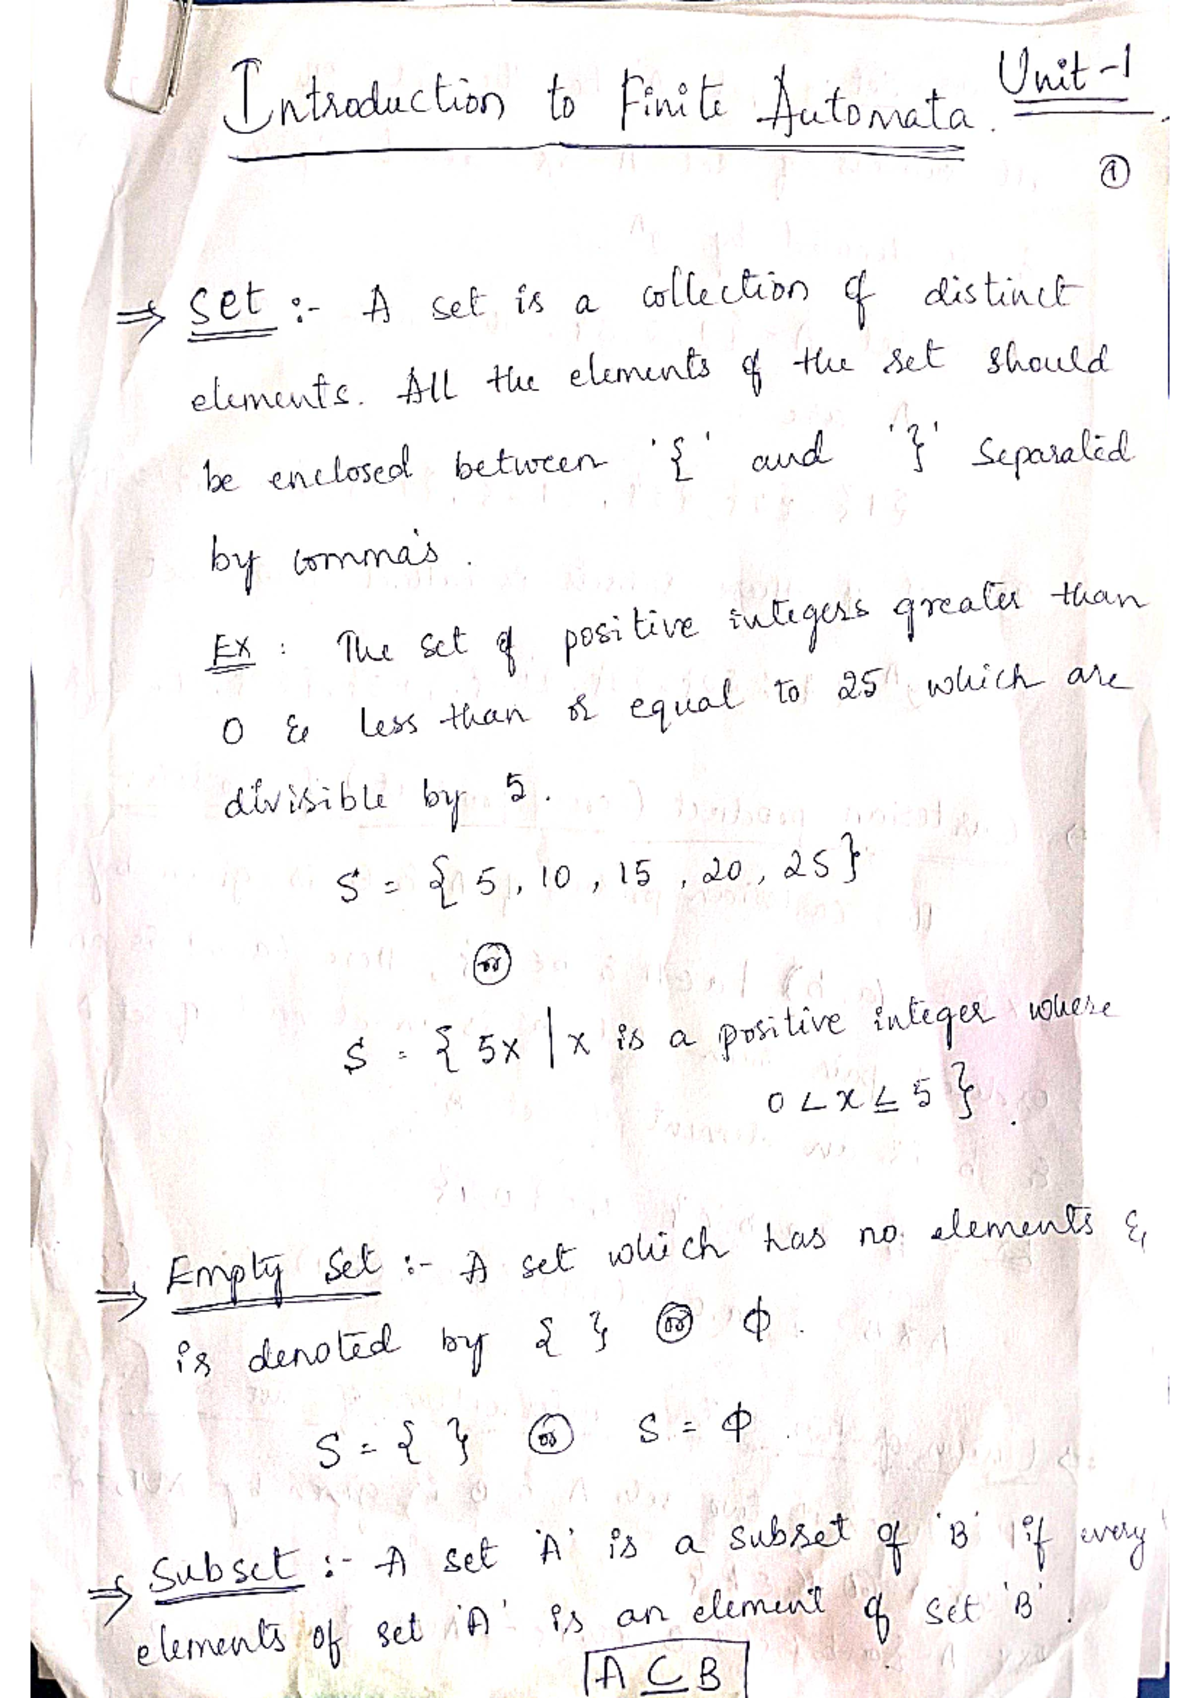 Introduction to Finite Automata. Unit-1
1
⇒ Set :- A set is a collection of distinct
elements. All the elements of the set should
be enclosed between '{' and '}' separated
by comma's.
Ex : The set of positive integers greater than
0 & less than or equal to 25 which are
divisible by 5.
S = { 5, 10, 15, 20, 25}
or
S = { 5x | x is a positive integer where
0 < x ≤ 5 }.
⇒ Empty Set :- A set which has no elements &
is denoted by { } or ϕ.
S = { } or S = ϕ
⇒ Subset :- A set 'A' is a subset of 'B' if every
elements of set 'A' is an element of set 'B'.
A ⊆ B